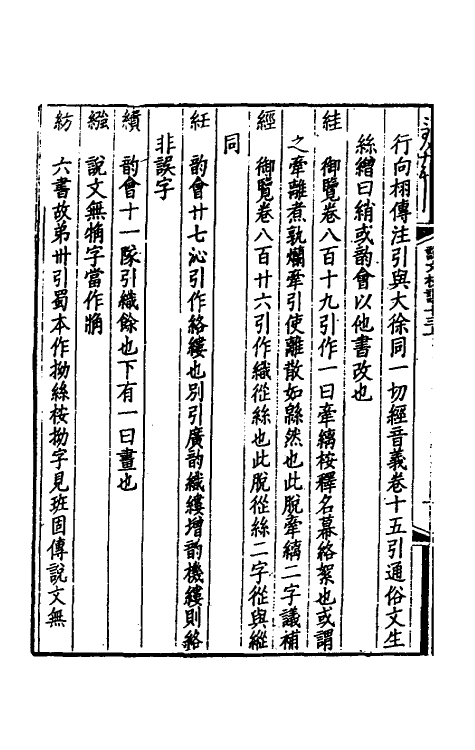 行向栩傳注引與大徐同一切經音義卷十五引通俗文生
絲繒曰綃或韵會以他書改也
絓　御覽卷八百十九引作一曰牽縭桉釋名幕絡絮也或謂
之牽離煮孰爛牽引使離散如緜然也此脫牽縭二字議補
經　御覽卷八百廿六引作織從絲也此脫從絲二字從與縱
同
紝　韵會廿七沁引作絡縷也別引廣韵織縷增韵機縷則絡
非誤字
繢　韵會十一隊引織餘也下有一曰畫也
說文無字當作
紡　六書故弟卅引蜀本作拗絲桉拗字見班固傳說文無